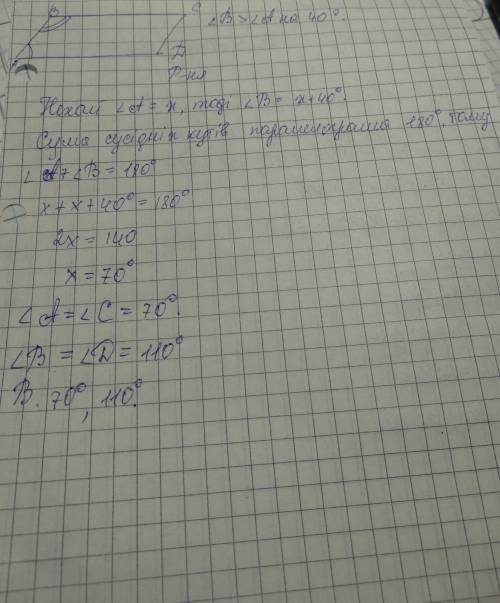 B C
∠B > ∠A на 40°.
A D
Р-ня
Нехай ∠A = x, тоді ∠B = x+40°.
Сума сусідніх кутів паралелограма 180°, тому
∠A+∠B = 180°
x + x + 40° = 180°
2x = 140
x = 70°
∠A = ∠C = 70°.
∠B = ∠D = 110°
В. 70°, 110°.